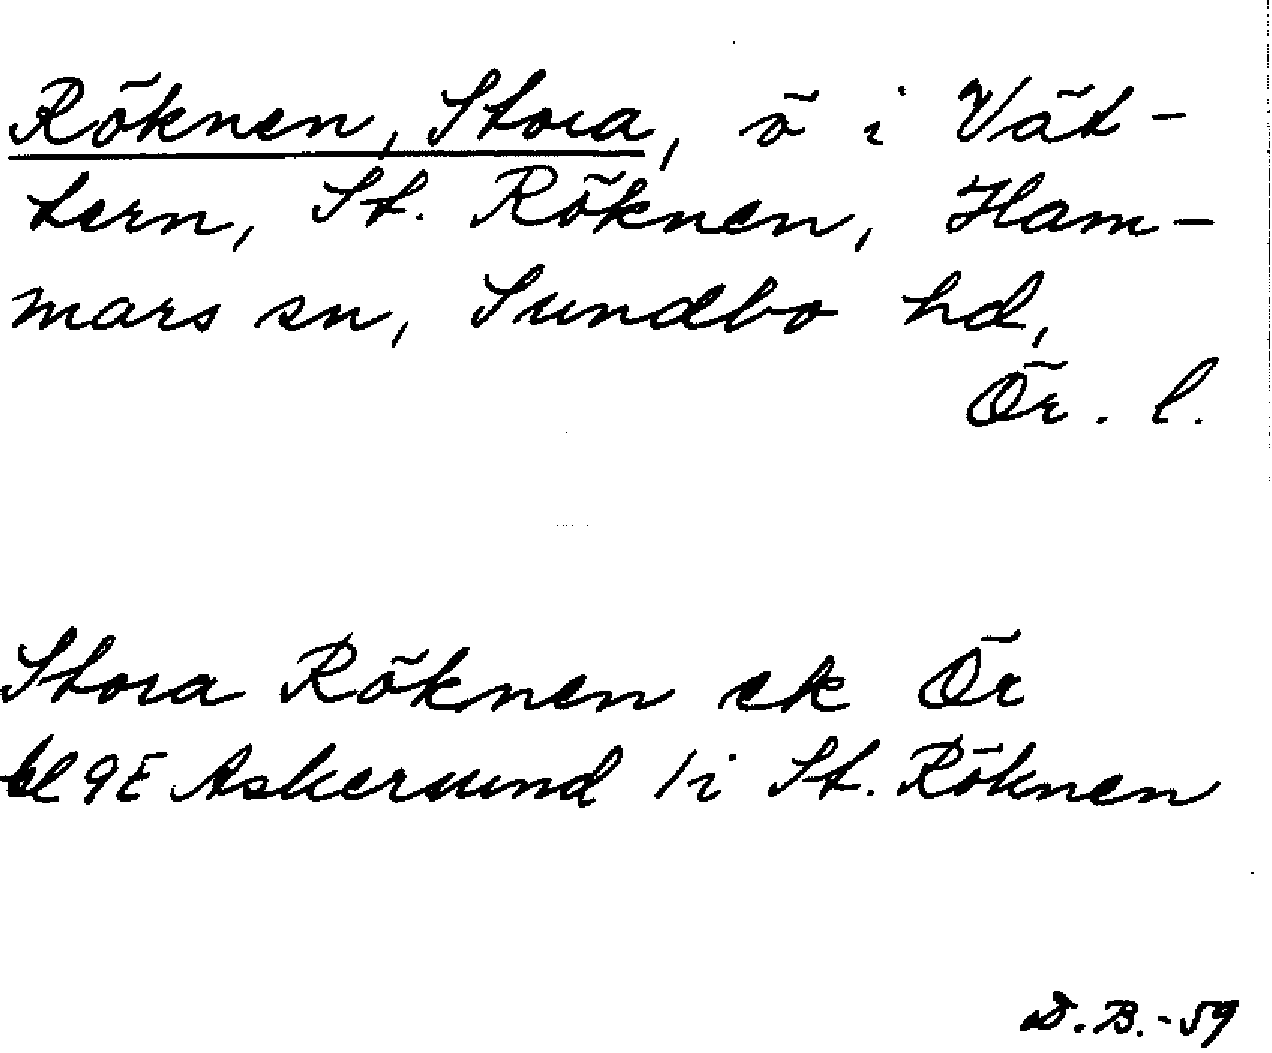 Röknen, Stora, ö i Vät-
tern, St. Röknen, Ham-
mars sn, Sundbo hd,
Ör. l.
Stora Röknen ek Ör
bl 9E Askersund /i St. Röknen
D.B.-59